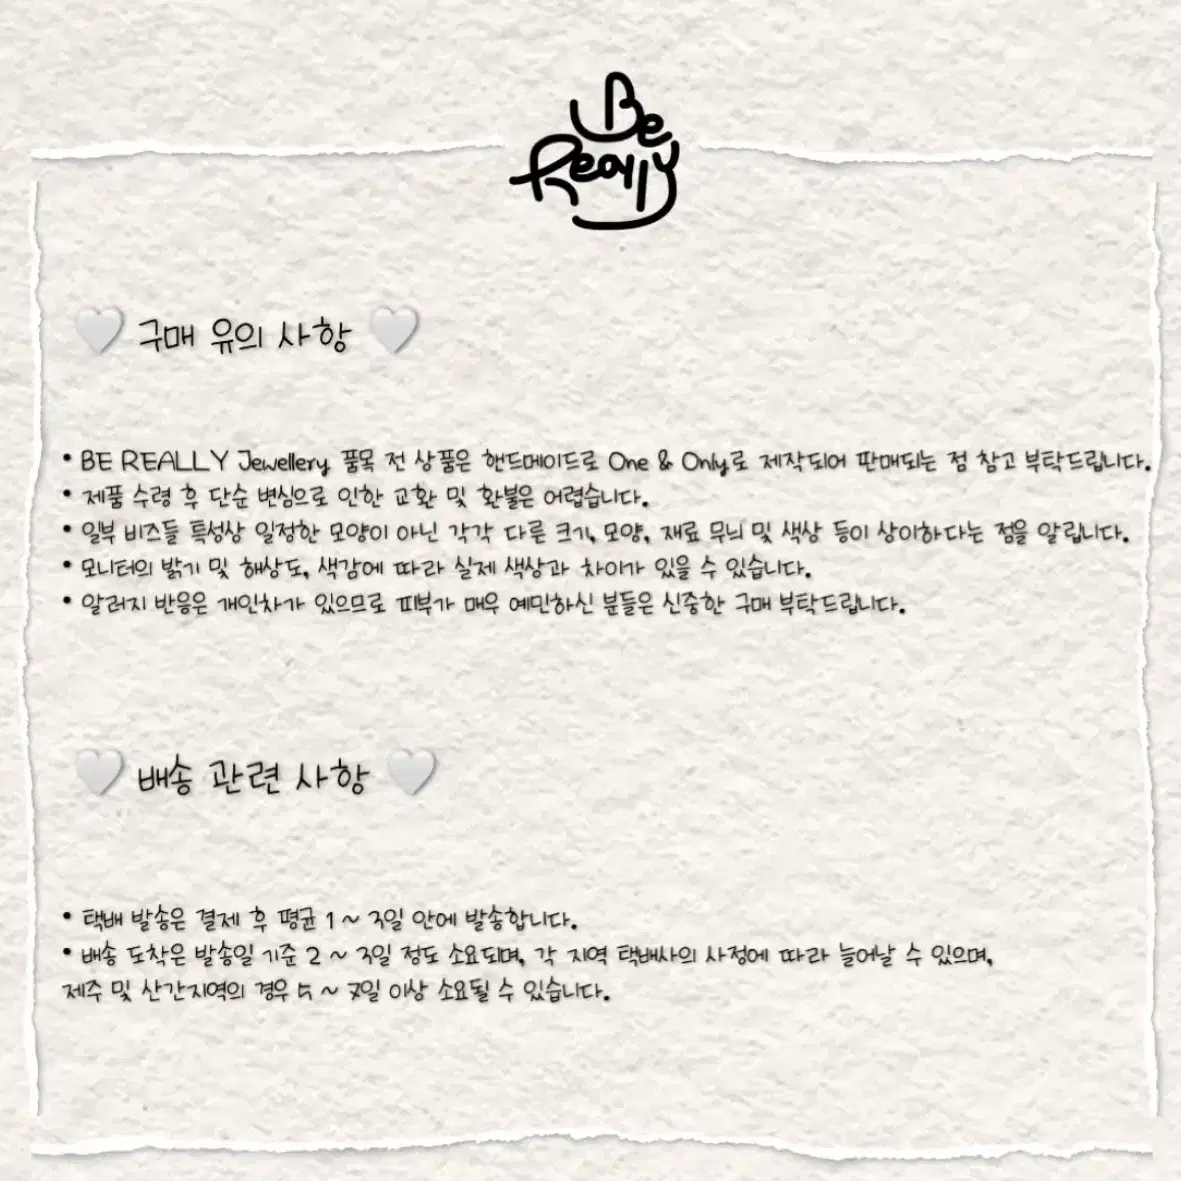 Be
Really
🤍 구매 유의 사항 🤍
• BE REALLY Jewellery 품목 전 상품은 핸드메이드로 One & Only로 제작되어 판매되는 점 참고 부탁드립니다.
• 제품 수령 후 단순 변심으로 인한 교환 및 환불은 어렵습니다.
• 일부 비즈들 특성상 일정한 모양이 아닌 각각 다른 크기, 모양, 재료 무늬 및 색상 등이 상이하다는 점을 알립니다.
• 모니터의 밝기 및 해상도, 색감에 따라 실제 색상과 차이가 있을 수 있습니다.
• 알러지 반응은 개인차가 있으므로 피부가 매우 예민하신 분들은 신중한 구매 부탁드립니다.
🤍 배송 관련 사항 🤍
• 택배 발송은 결제 후 평균 1 ~ 3일 안에 발송합니다.
• 배송 도착은 발송일 기준 2 ~ 3일 정도 소요되며, 각 지역 택배사의 사정에 따라 늘어날 수 있으며,
제주 및 산간지역의 경우 5 ~ 7일 이상 소요될 수 있습니다.